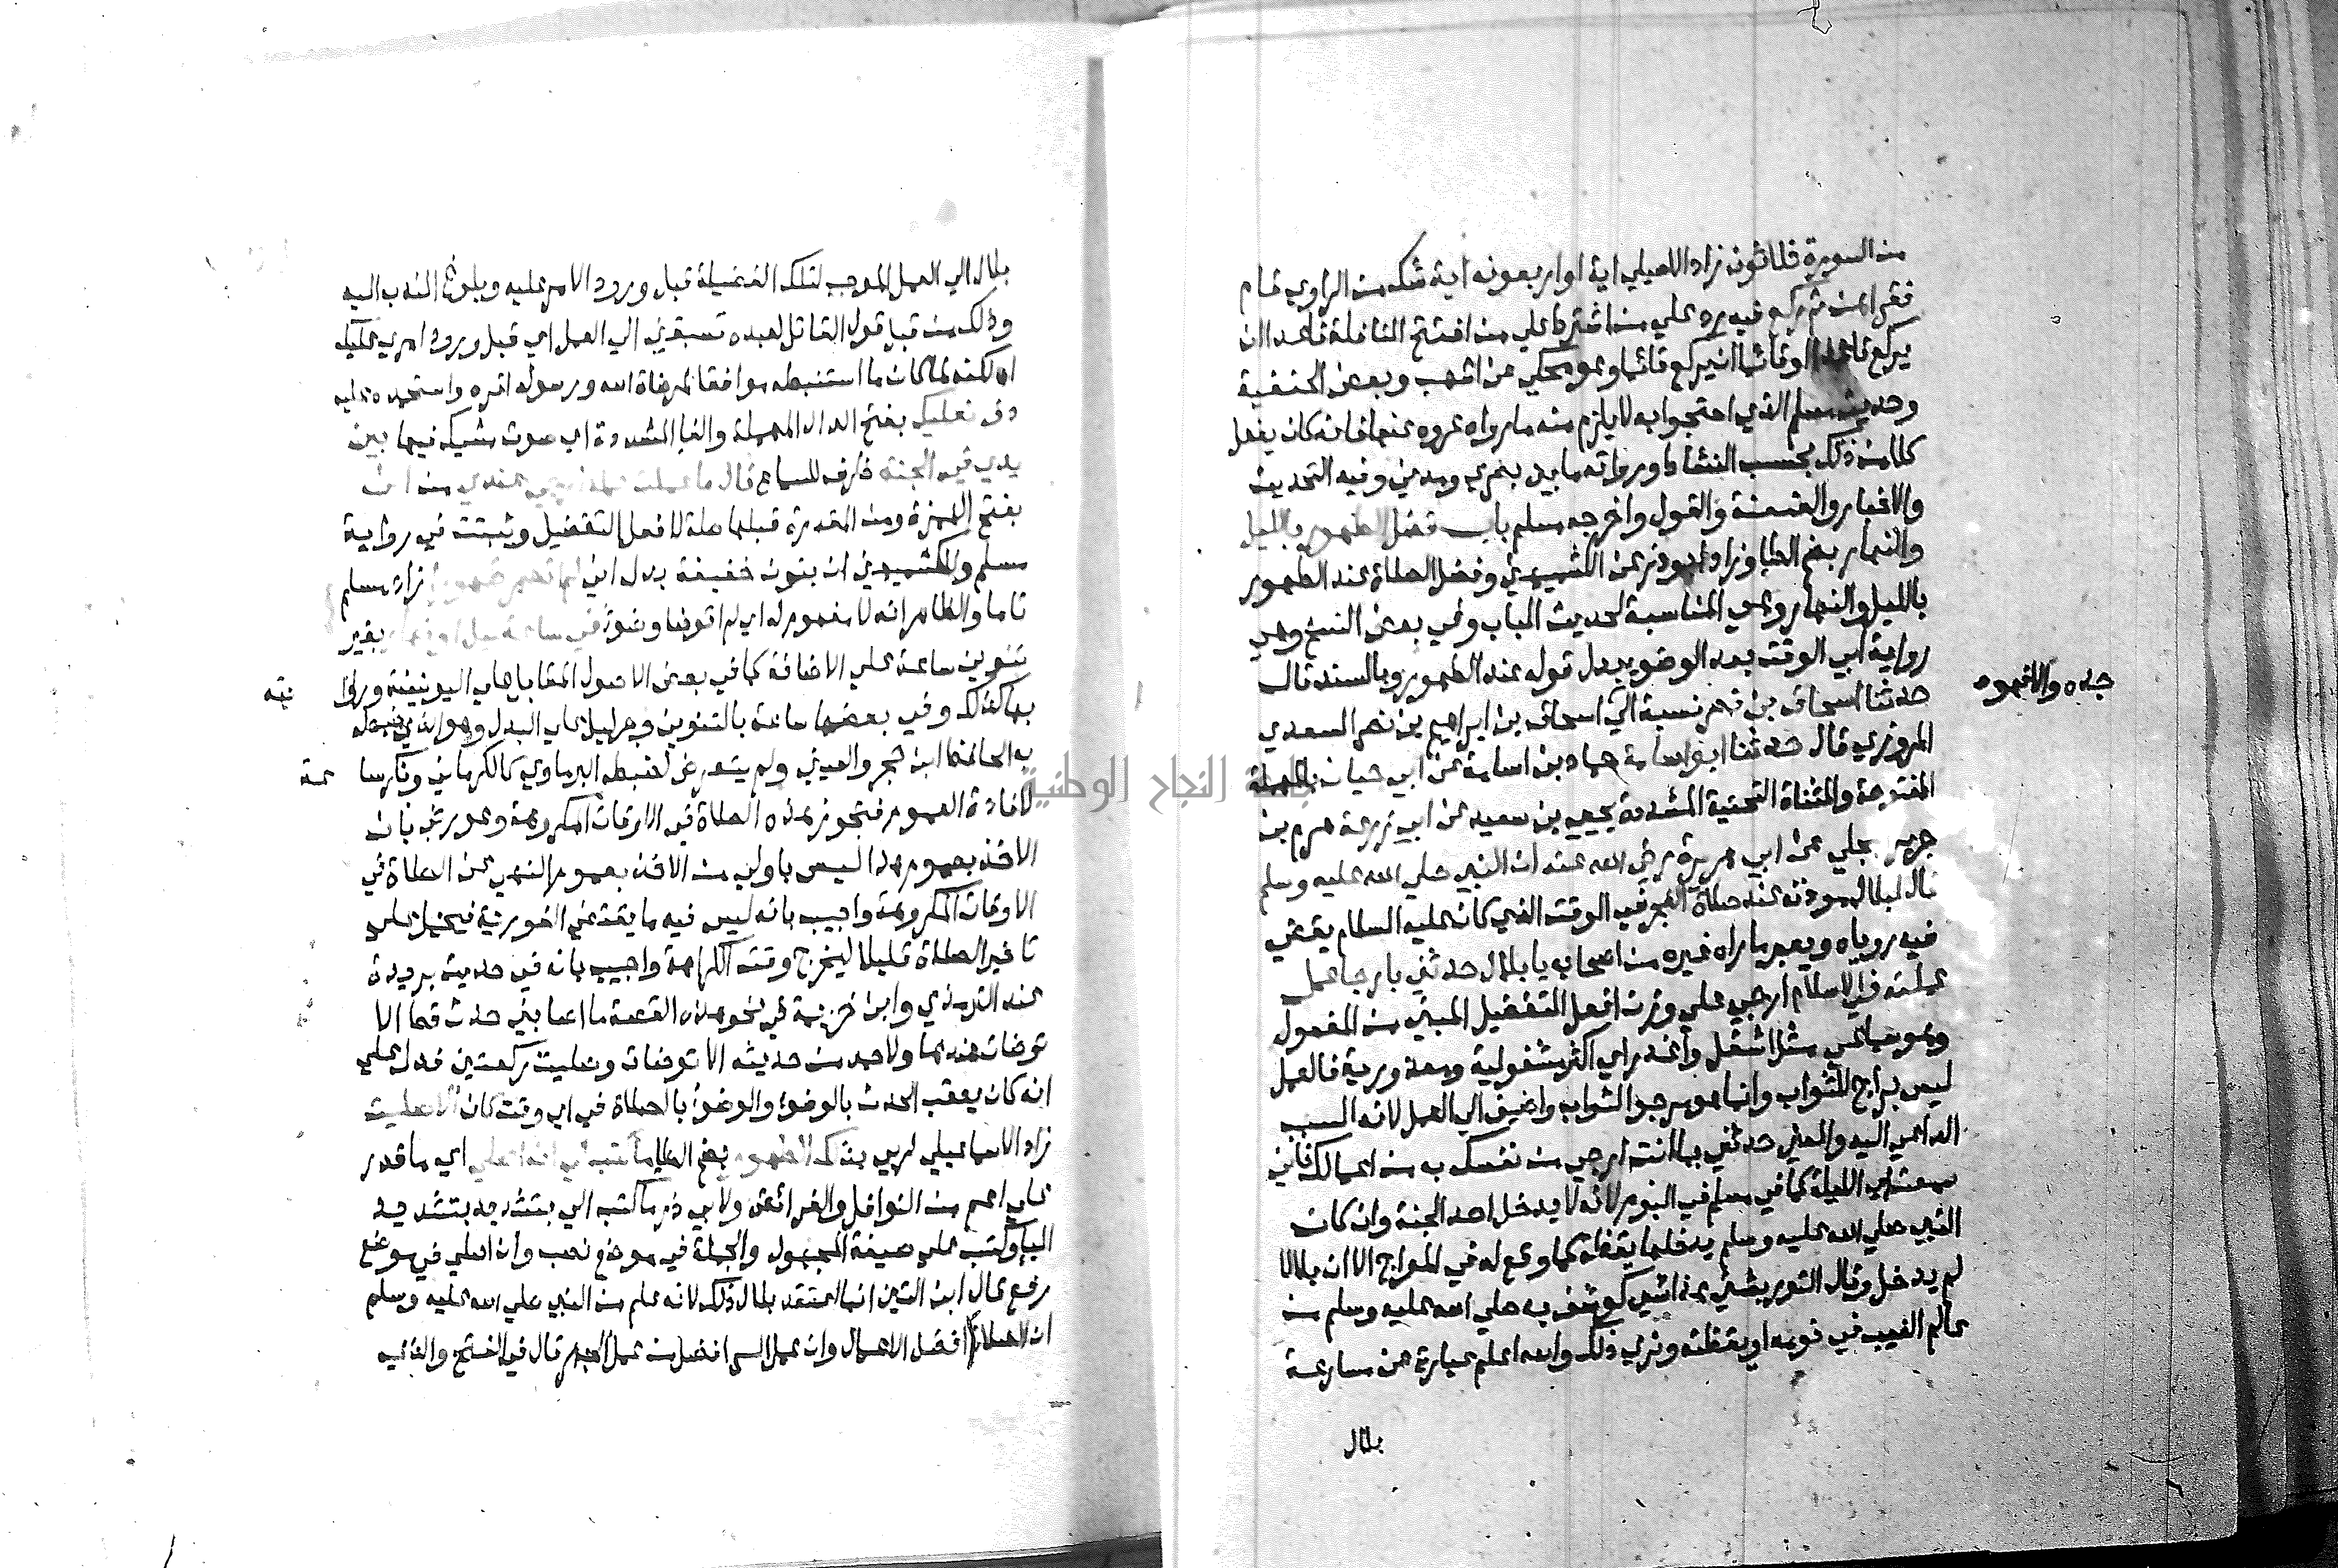 من السورة ثلاثون زاد الاصيلي اية او اربعون اية شك من الراوي قام
فقراهن ثم ركع فيه رد علي من اشترط علي من افتتح النافلة قاعدا ان
يركع قاعدا او قائما ان يركع قائما وهو محكي عن اشهب وبعض الحنفية
وحديث مسلم الذي احتجوا به لا يلزم منه ما رواه عروه عنها فانه كان يفعل
كلا من ذلك بحسب النشاط ورواته ما بين بصري ومدني وفيه التحديث
والاخبار والعنعنة والقول واخرجه مسلم باب فضل الطهور بالليل
والنهار بضم الطا وزاد ابو ذر عن الكشميهني وفضل الصلاة عند الطهور
بالليل والنهار وهي المناسبة لحديث الباب وفي بعض النسخ وهي
رواية ابي الوقت بعد الوضو بدل قوله عند الطهور وبالسند قال
حدثنا اسحاق بن نصر نسبة الي
جده والافهو
اسحاق بن ابراهيم بن نصر السعدي
المروزي قال حدثنا ابو اسامة حماد بن اسامة عن ابي حيان بالمهملة
المفتوحة والمثناة التحتية المشددة يحيي بن سعيد عن ابي زرعة هرم بن
جرير بجلي عن ابي هريرة رضي الله عنه ان النبي صلي الله عليه وسلم
قال لبلال موذنه عند صلاة الفجر في الوقت الذي كان عليه السلام يقص
فيه روياه ويعبر ما راه غيره من اصحابه يا بلال حدثني بارجا عمل
عملته في الاسلام ارجي علي وزن افعل التفضيل المبني من المفعول
وهو سماعي مثل اشغل واعذر اي اكثر مشغولية ومعذورية فالعمل
ليس براج للثواب وانما هو مرجو الثواب واضيف الي العمل لانه السبب
الداعي اليه والمعني حدثني بما انت ارجي من نفسك به من اعمالك فاني
سمعت اي الليلة كما في مسلم في النوم لانه لا يدخل احد الجنة وان كان
النبي صلي الله عليه وسلم يدخلها يقظة كما وقع له في المعراج الا ان بلالا
لم يدخل وقال التوربشتي هذا شي كوشف به صلي الله عليه وسلم من
عالم الغيب في نومه او يقظته ونري ذلك والله اعلم عبارة عن مسارعة
بلال
بلال الي العمل الموجب لتلك الفضيلة قبل ورود الامر عليه وبلوغ الندب اليه
وذلك من قبيل قول القائل لعبده تسبقني الي العمل اي قبل ورود امري عليك
اه لكنه لما كان ما استنبطه موافقا لمرضاة الله ورسوله اقره واستحمده عليه
دف نعليك بفتح الدال المهملة والفا المشددة اي صوت مشيك فيهما بين
يدي في الجنة ظرف للسماع قال ما عملت عملا ارجي عندي من اني
بفتح الهمزة ومن المقدرة قبلها صلة لافعل التفضيل وثبتت في رواية
مسلم وللكشميهني ان بنون خفيفة بدل اني لم اتطهر طهورا زاد مسلم
تاما والظاهر انه لا مفهوم له اي لم اتوضا وضوا في ساعة ليل او نهار بغير
تنوين ساعة علي الاضافة كما في بعض الاصول المقابل علي اليونينية ورا
يته
بها كذلك وفي بعضها ساعة بالتنوين وجر ليل علي البدل وهو الذي ضبطه
به الحافظ ابن حجر والعيني ولم يتعرض لضبطه البرماوي كالكرماني ونكر سا
عة
لافادة العموم فتجوز هذه الصلاة في الاوقات المكروهة وعورض بان
الاخذ بعموم هذا ليس باولي من الاخذ بعموم النهي عن الصلاة في
الاوقات المكروهة واجيب بانه ليس فيه ما يقتضي الفورية فيحمل علي
تاخير الصلاة قليلا ليخرج وقت الكراهة واجيب بانه في حديث بريدة
عند الترمذي وابن خزيمة في نحو هذه القصة ما اصابني حدث قط الا
توضات عندها ولاحمد من حديثه الا توضات وصليت ركعتين فدل علي
انه كان يعقب الحدث بالوضوء والوضوء بالصلاة في اي وقت كان الا صليت
زاد الاسماعيلي لربي بذلك الطهور بضم الطا ما كتب لي ان اصلي اي ما قدر
علي اعم من النوافل والفرائض ولابي ذر ما كتب الي بتشديد
اليا وكتب علي صيغة المجهول والجملة في موضع نصب وان اصلي في موضع
رفع قال ابن التين انما اعتقد بلال ذلك لانه علم من النبي صلي الله عليه وسلم
ان الصلاة افضل الاعمال وان عمل السر افضل من عمل الجهر قال في الفتح والذي
جامعة النجاح الوطنية